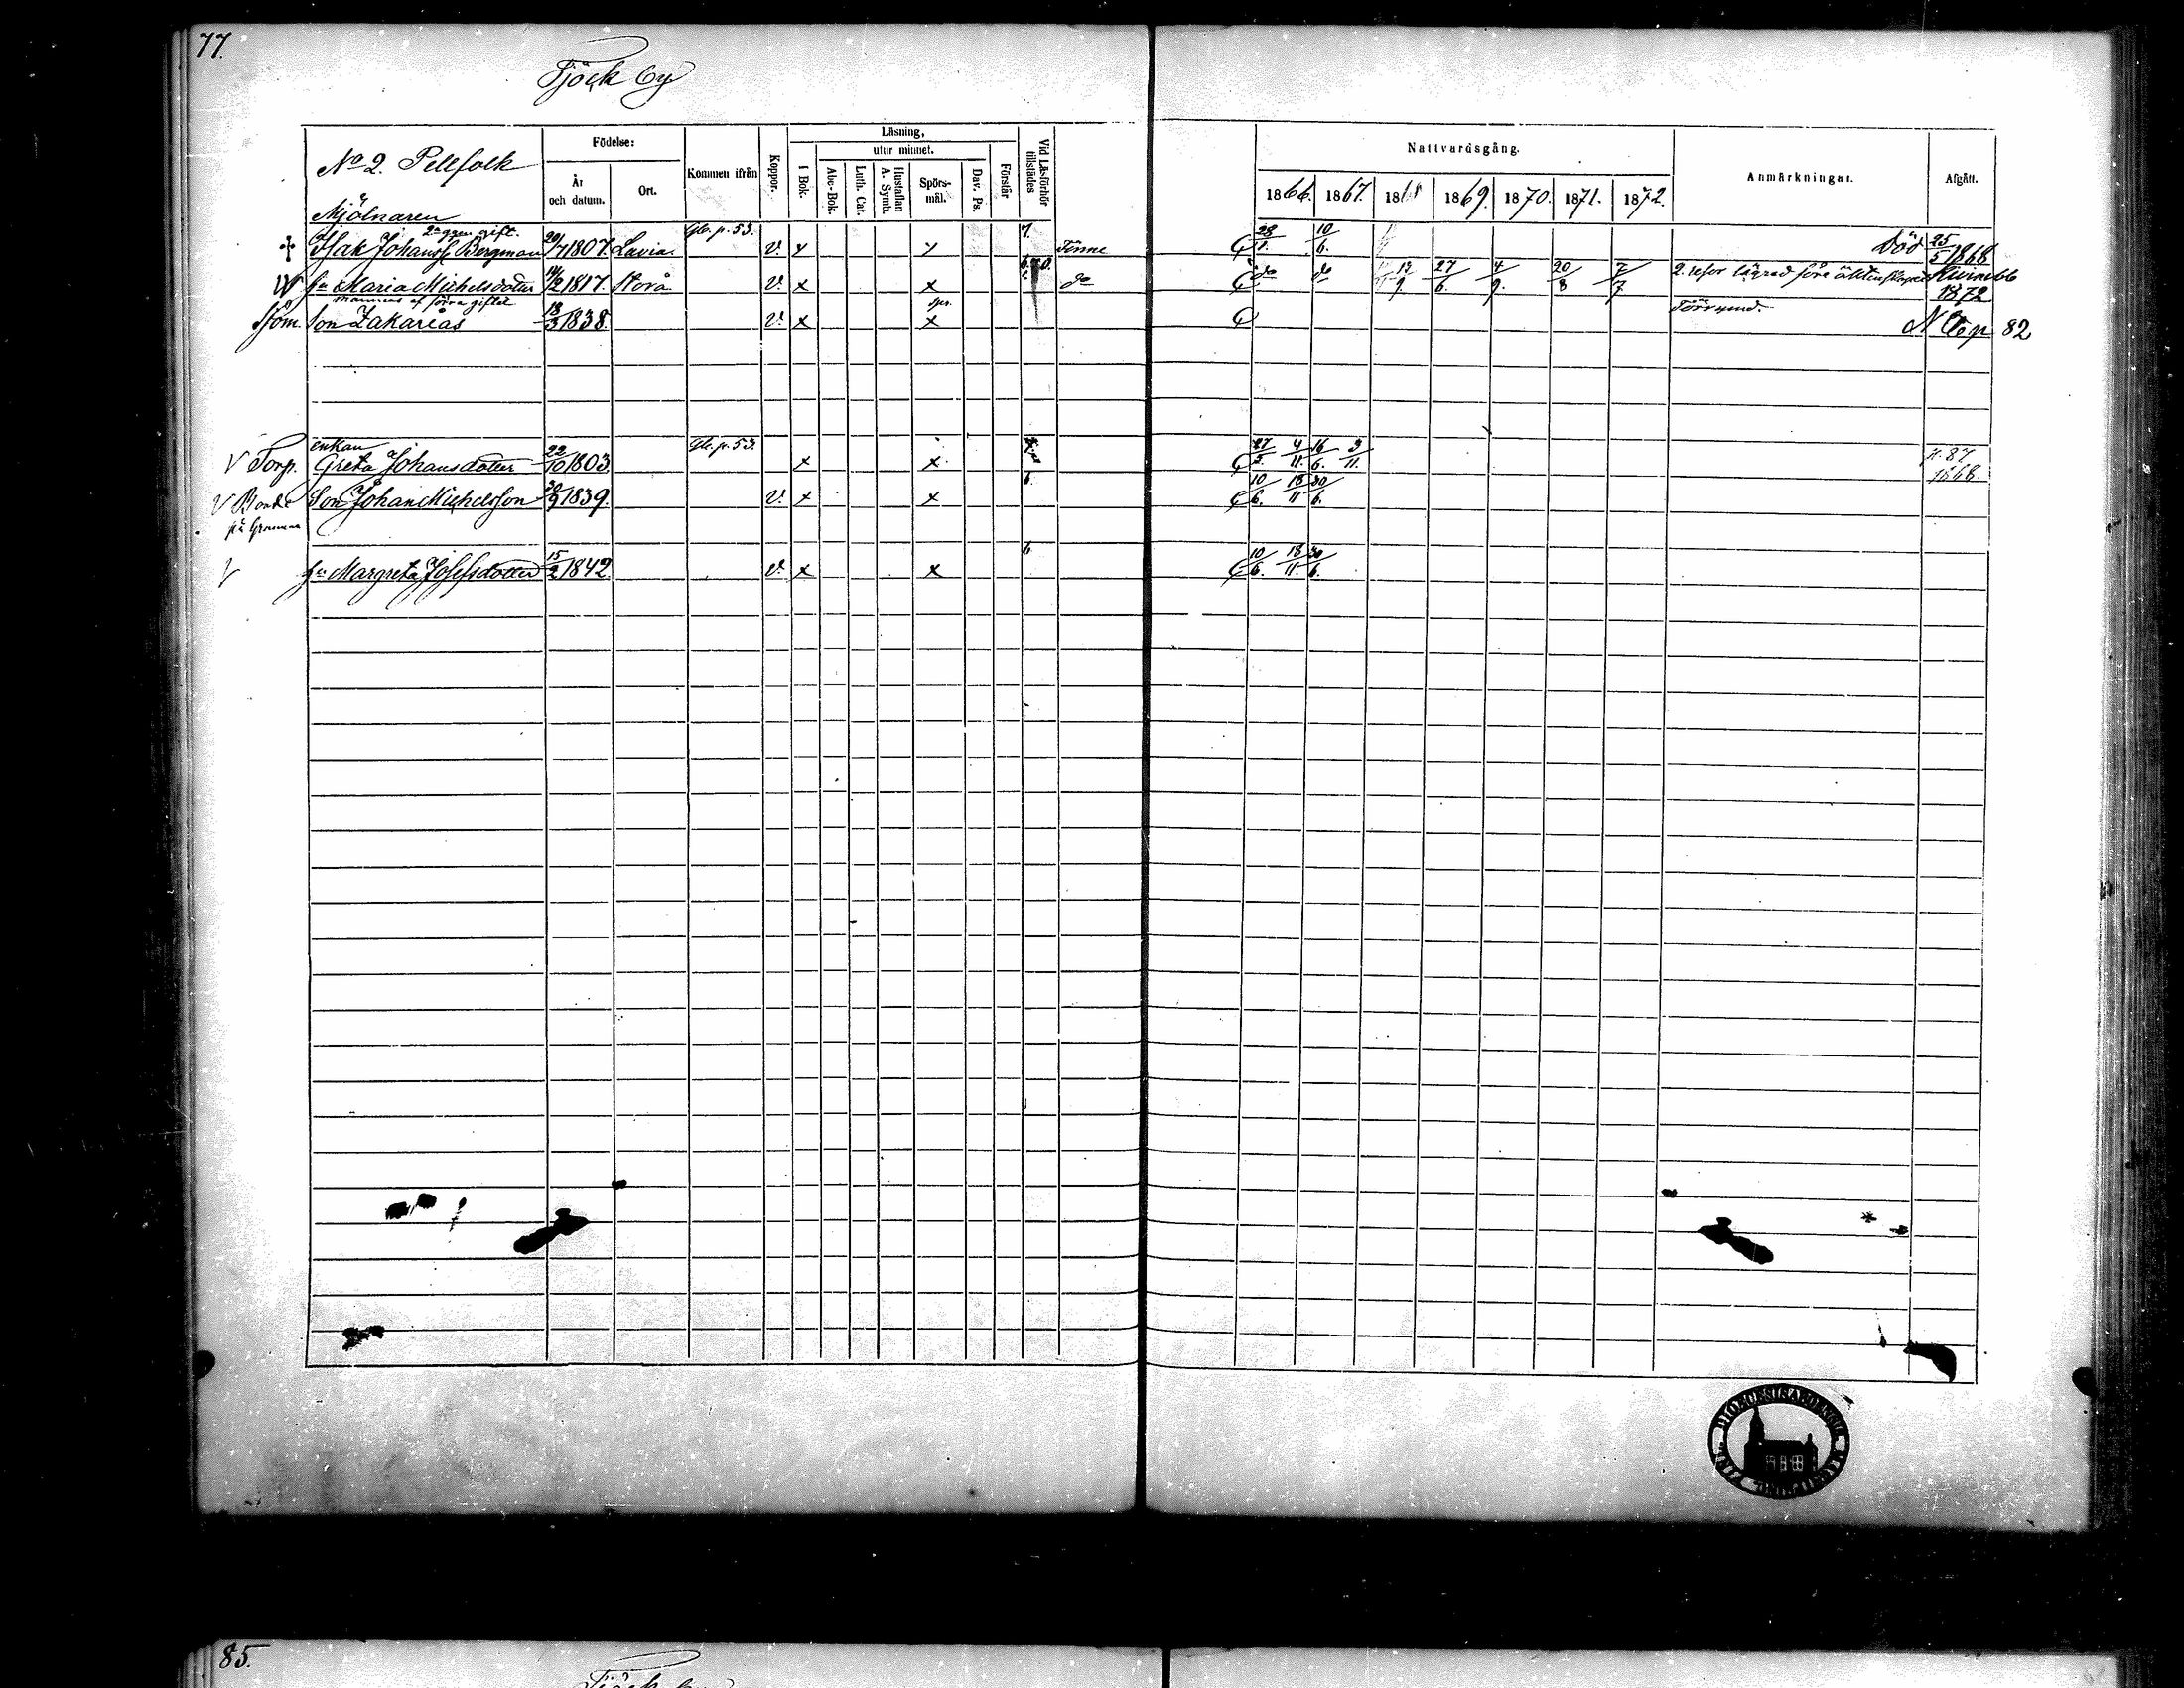 77.
Tjöck by
No 2. Pellfolk
Födelse:
År och datum.
Ort.
Kommen ifrån
Koppor.
Läsning,
I Bok.
utur minnet.
Abc-Bok.
Luth. Cat.
Hustaflan A. Symb.
Spörs-mål.
Dav. Ps.
Förstår
Vid Läsförhör tillstädes
Nattvardsgång.
1866. 1867. 1868 1869. 1870. 1871. 1872.
Anmärkningar.
Afgått.
Mjölnaren
2a ggen gift.
Isak Johanss Bergman 20/7 1807. Lavia. Gb. p. 53. v. x x 7. 28/1. 10/6. Död 25/5 1868
hu Maria Michelsdotter 14/2 1817. Storå v. x x do do do 13/9. 27/6. 4/9. 20/8 7/7 2. resor lägrad före äktenskapet
1872
mannens af förra giftet
Son Zakarias 18/3 1838. v. x x 82
enkan
V Torp. Greta Johansdotter 22/10 1803. Gb. p. 53. x x 27/5. 4/11. 16/6. 3/11. p. 87
1868.
V Bonde Son Johan Michelsson 30/9 1839. v. x x 6. 10/6. 18/11 30/6.
V hu Margreta Josefsdotter 15/2 1842 v. x x 6 10/6. 18/11. 30/6.
85.
Tjöck by